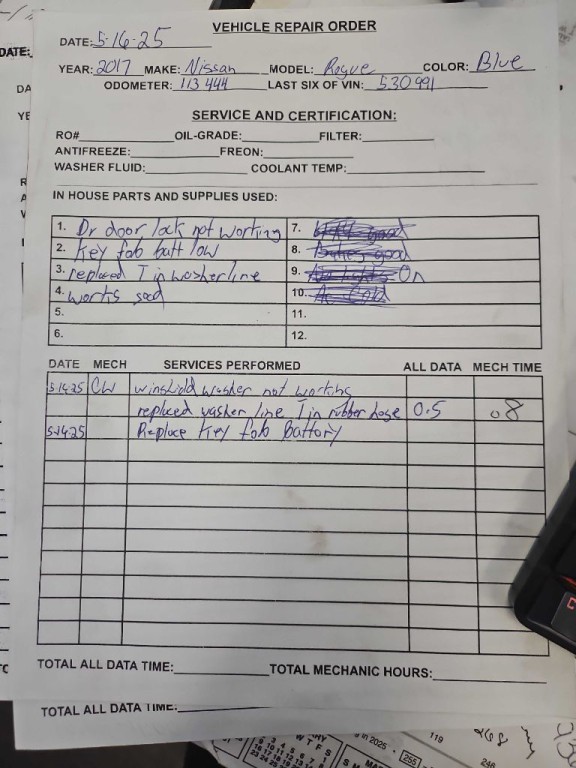 VEHICLE REPAIR ORDER
DATE: 5-16-25
DATE:
YEAR: 2017 MAKE: Nissan MODEL: Rogue COLOR: Blue
ODOMETER: 113 444 LAST SIX OF VIN: 530991
DA
YE
SERVICE AND CERTIFICATION:
RO# OIL-GRADE: FILTER:
ANTIFREEZE: FREON:
WASHER FLUID: COOLANT TEMP:
IN HOUSE PARTS AND SUPPLIES USED:
1. Dr door lock not working 7. good
2. Key fob batt low 8. good
3. replaced T in washer line 9. On
4. works 10. Ac Cold
5. 11.
6. 12.
DATE MECH SERVICES PERFORMED ALL DATA MECH TIME
CW winshild washer not working
replaced washer line T in rubber hose 0.5 .8
Replace Key fob Battory
TOTAL ALL DATA TIME: TOTAL MECHANIC HOURS:
TOTAL ALL DATA TIME:
in 2025 255 119
246
268
W T F S